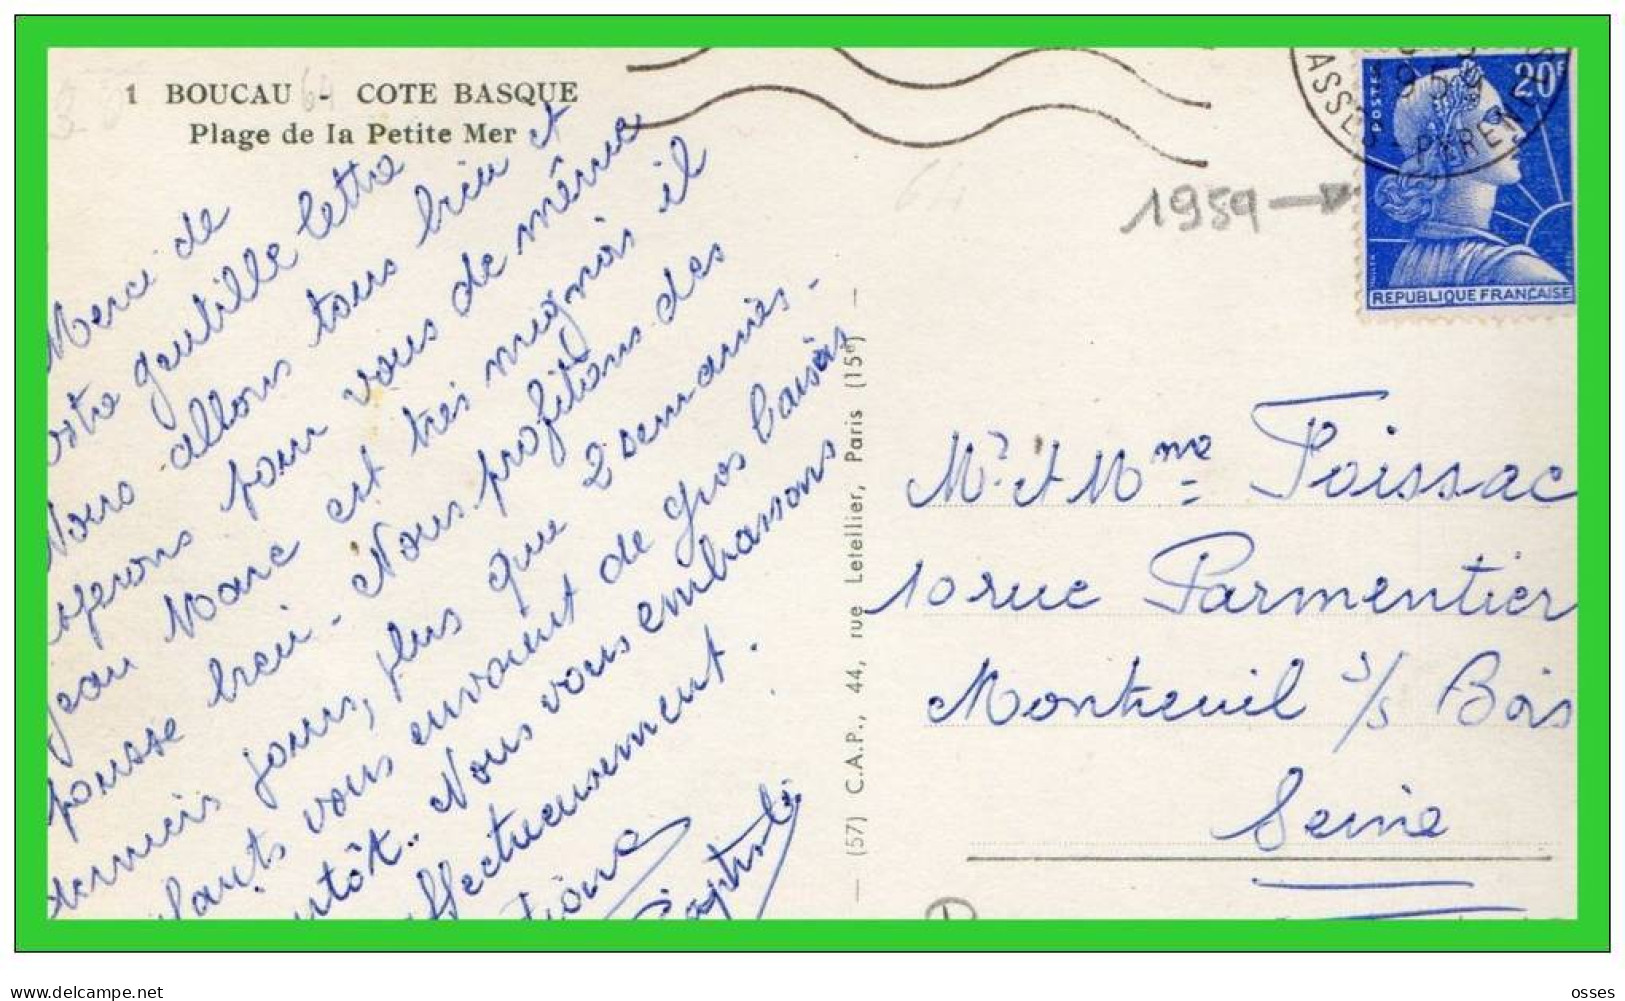 1 BOUCAU 64 - COTE BASQUE
Plage de la Petite Mer
Merci de
votre gentille lettre
Nous allons tous bien et
espérons pour vous de même
Jean Marc est très mignon il
pousse bien - Nous profitons des
derniers jours, plus que 2 semaines -
enfants vous envoient de gros baisers
bientôt.. Nous vous embrassons
affectueusement.
(57) C.A.P., 44, rue Letellier, Paris (15e)
1959
POSTES
20F
REPUBLIQUE FRANÇAISE
Mr. et Mme = Foissac
10 rue Parmentier
Montreuil s/s Bois
Seine
delcampe.net
osses